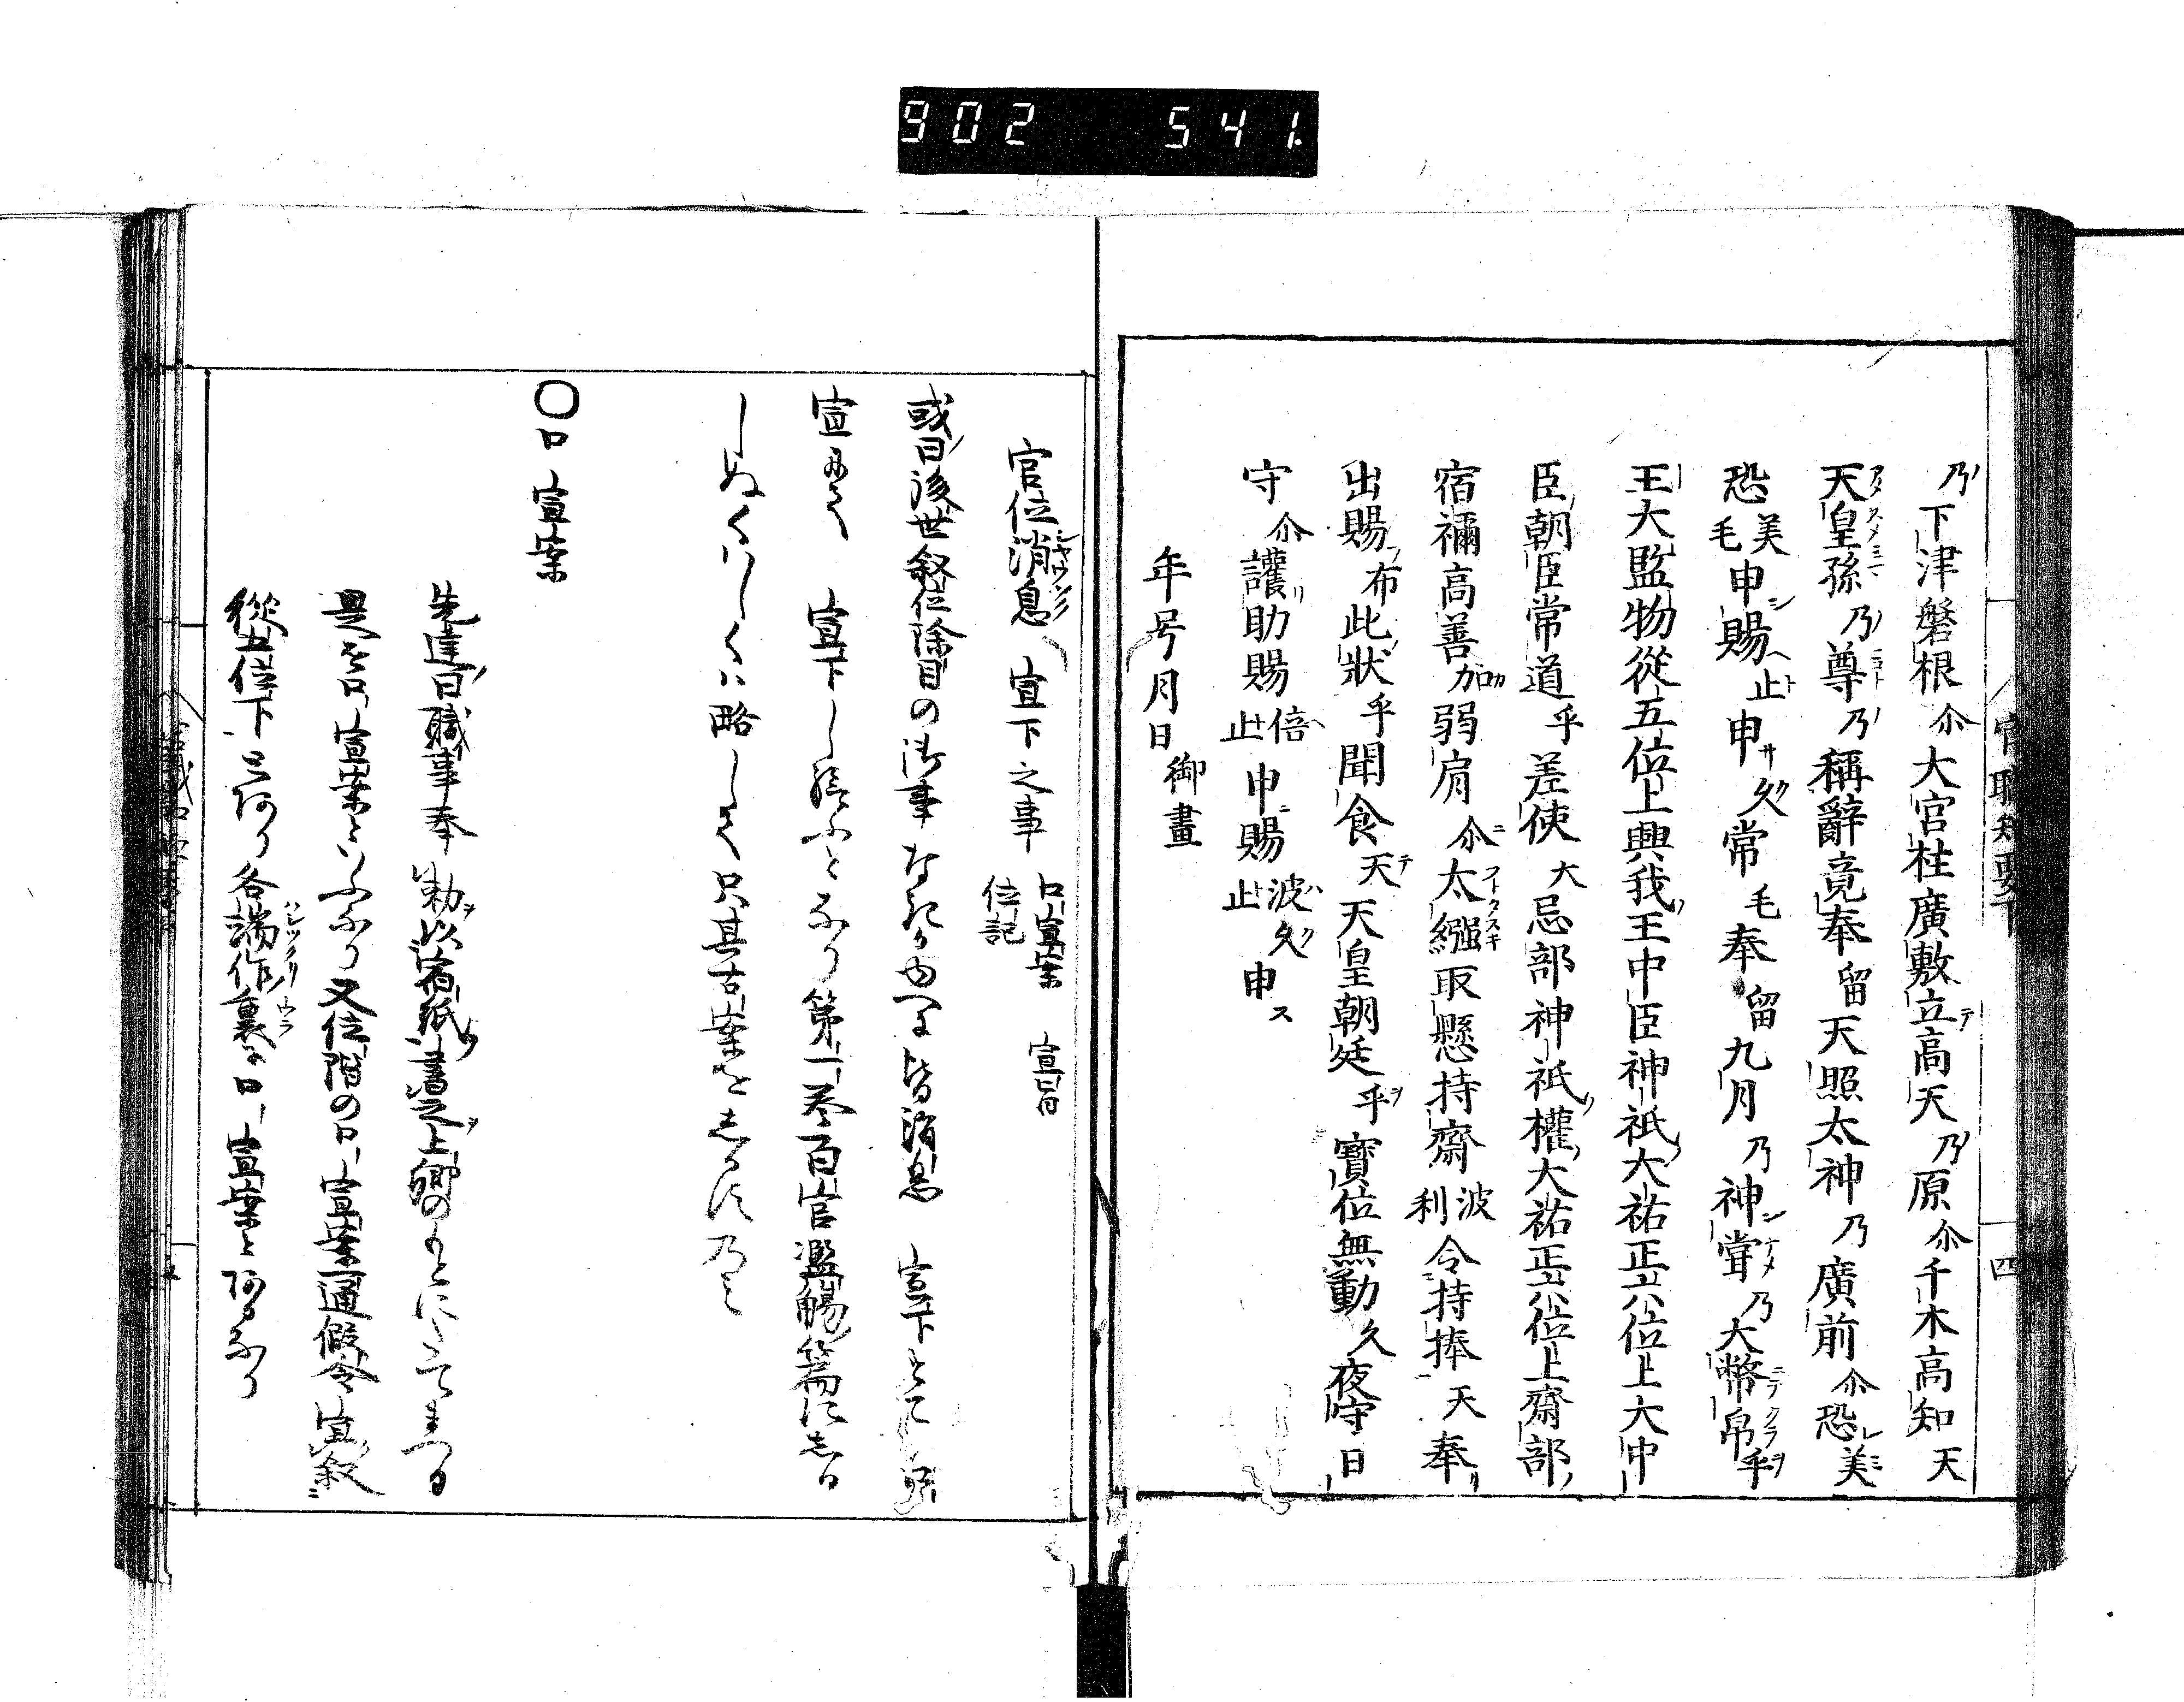 902 541
官職知要下
四
乃下津磐根尒大宮柱廣敷立高天乃原尒千木高知天
天皇孫乃尊乃稱辭竟奉留天照太神乃廣前尒恐美
恐美毛申賜止申久常毛奉留九月乃神甞乃大幣帛乎
王大監物從五位上興我王中臣神祇大祐正六位上大中
臣朝臣常道乎差使大忌部神祇權大祐正六位上齋部
宿禰高善加弱肩尒太繦取懸持齋波利令持捧天奉
出賜布此狀乎聞食天天皇朝廷乎寶位無動久夜守日
守尒護助賜倍止申賜波久止申
年号月日御畫
官位消息宣下之事 口宣案 宣旨 位記
或曰後世叙位除目の御事なきゆへに皆消息宣下とて
宣下し給ふとなり第一巻百官濫觴篇にしる
しぬくはしくは略して只其古案をしるすのみ
〇口宣案
先達曰職事奉勅以宿紙書之上卿のもとにたてまつる
是を口宣案といふなり又位階の口宣案一通假令宣叙
從五位下とあり各端作裏に口宣案とあるなり